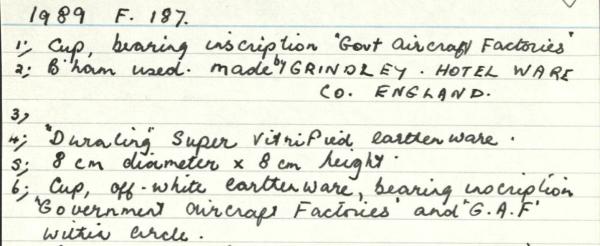 1989 F. 187.
1; Cup, bearing inscription "Govt Aircraft Factories"
2; B'ham used. made by GRINDLEY. HOTEL WARE
CO. ENGLAND.
3;
4; "Duraling" Super Vitrified earthenware.
5; 8 cm diameter x 8 cm height.
6; Cup, off-white earthenware, bearing inscription
"Government Aircraft Factories" and "G.A.F"
within circle.